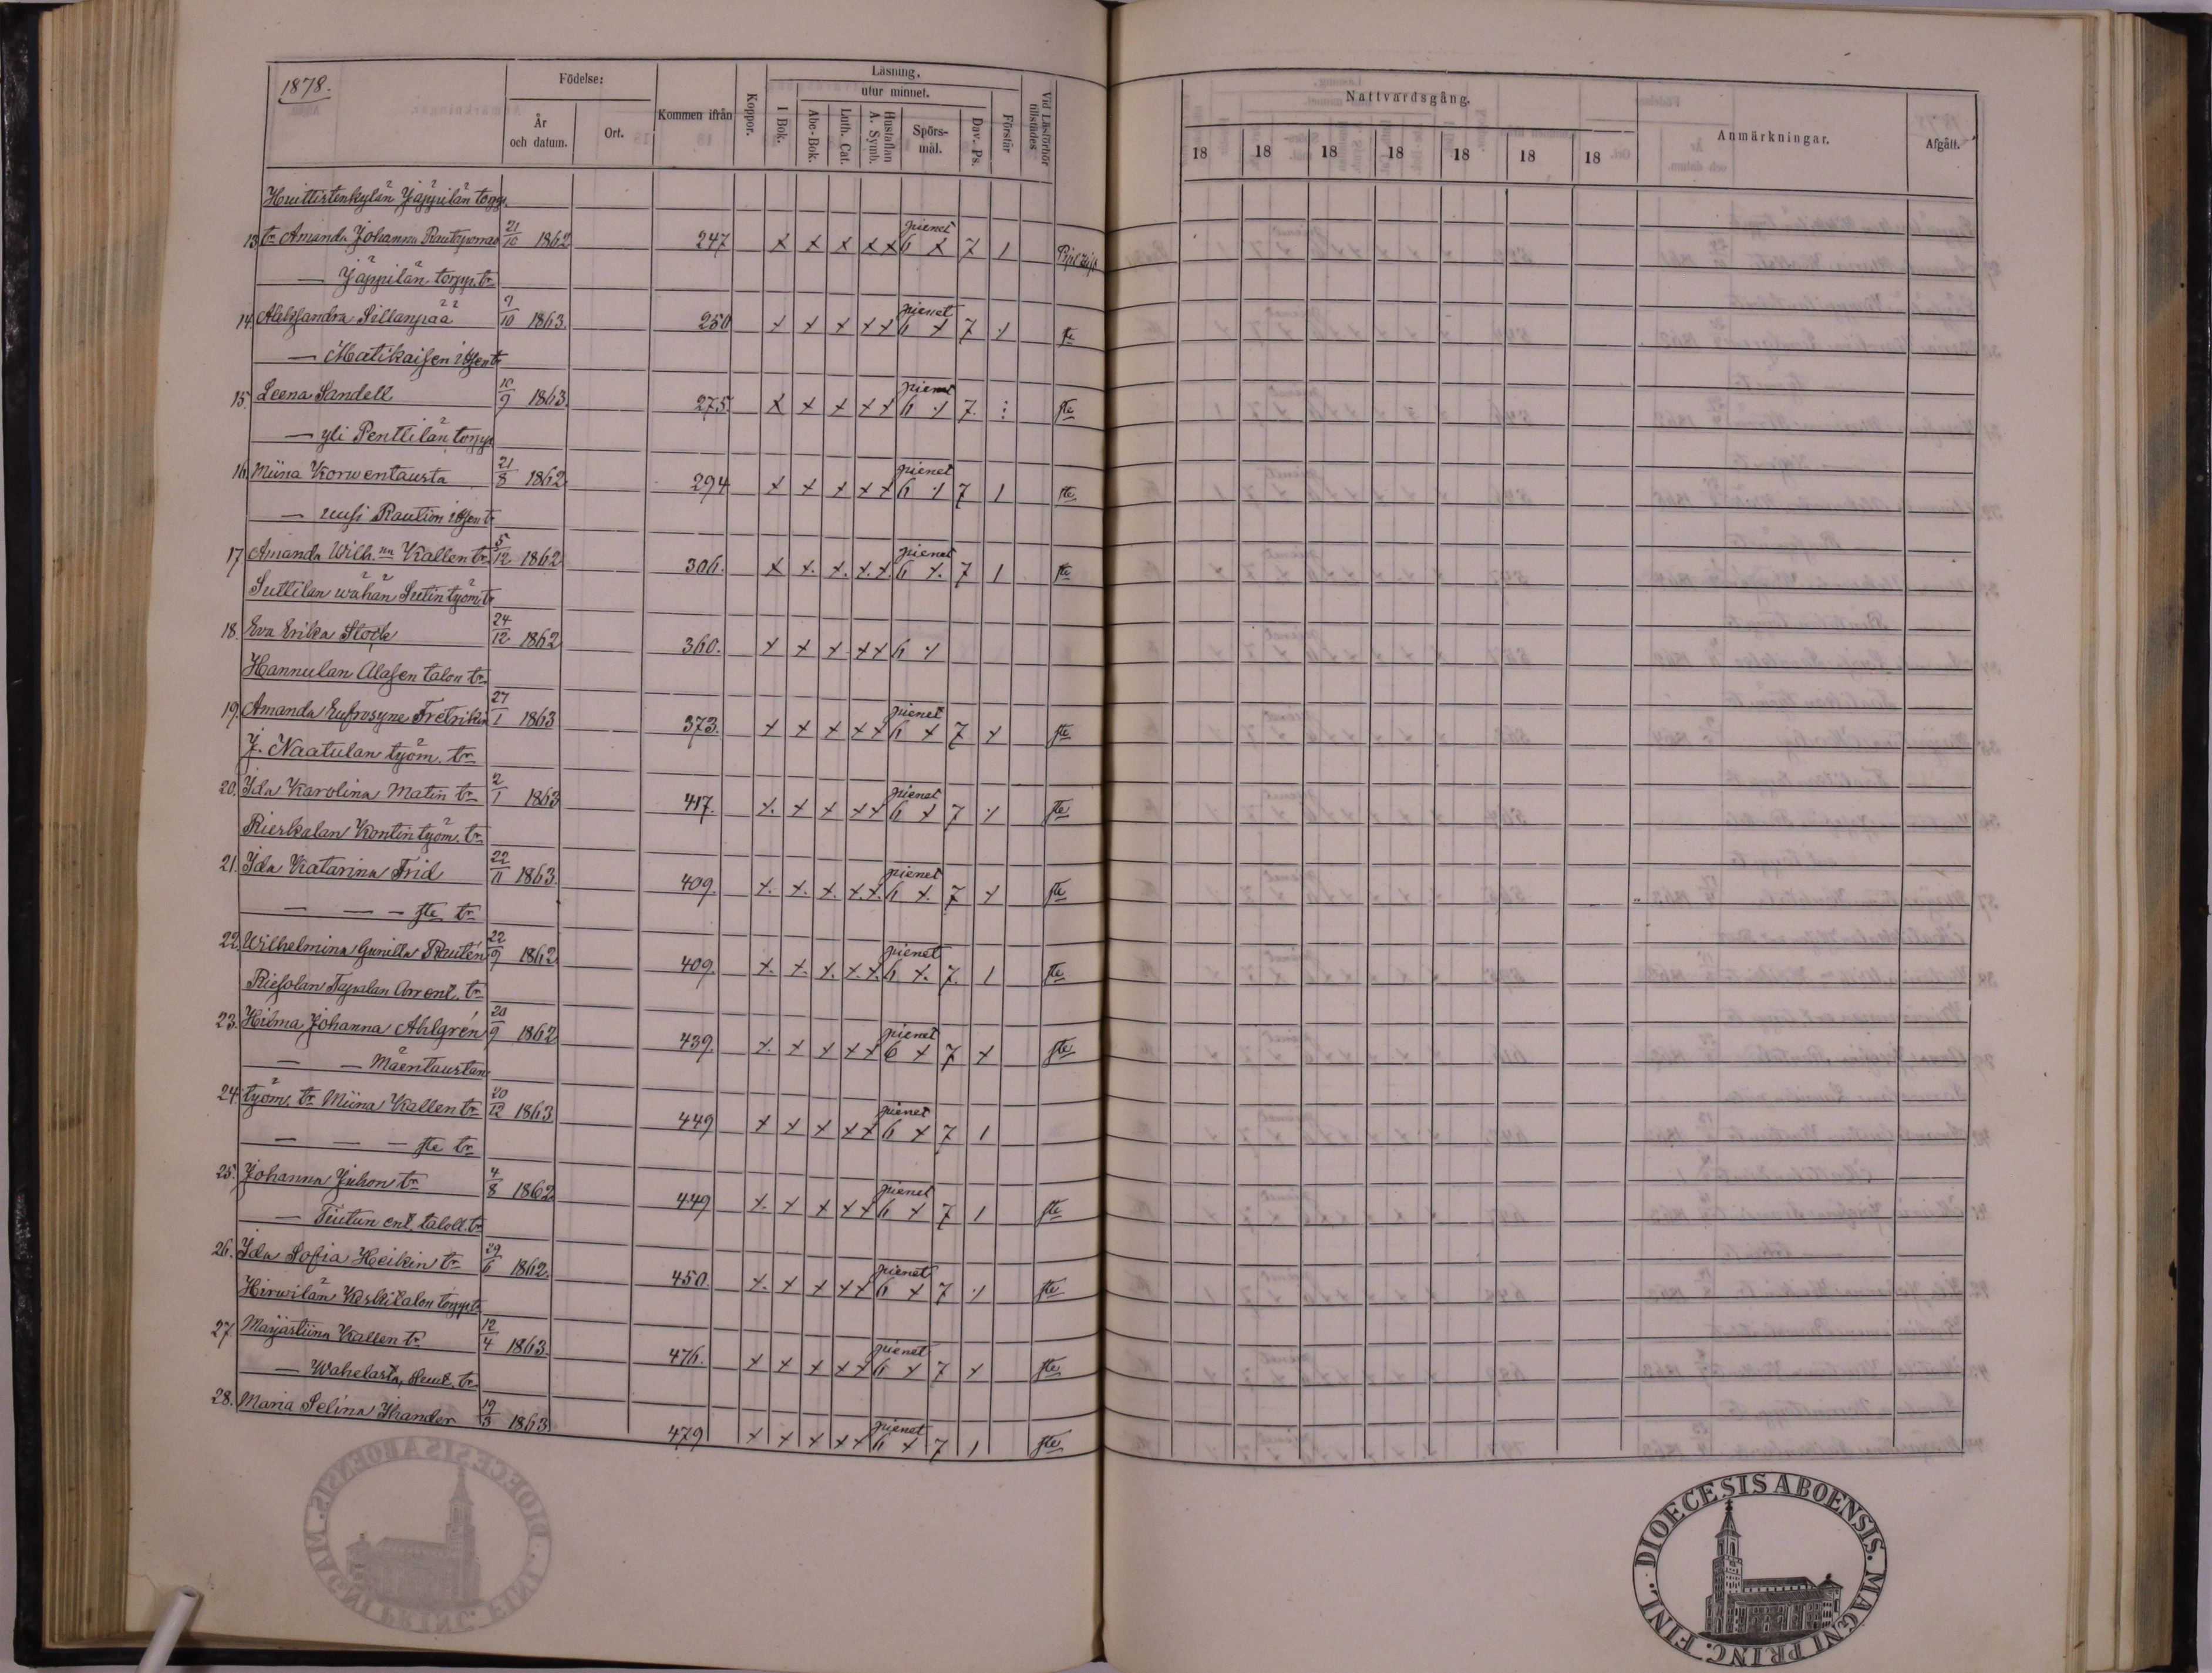 1878.
Födelse:
År och datum.
Ort.
Kommen ifrån
Koppor.
Läsning.
utur minnet.
I Bok.
Abc-Bok.
Luth. Cat.
Hustaflan A. Symb.
Spörsmål.
Dav. Ps.
Förstår
Vid Läsförhör tillstädes
Nattvardsgång.
18 18 18 18 18 18 18
Anmärkningar.
Afgått.
Huittistenkylän Jäppilän torpp.
13. tr Amanda Johanna 21/10 1862 247 x x x x x pienet 6 x 7 1
— Jäppilän torpp. tr
14. Aleksandra Sillanpää 9/10 1863. 250 x x x x x pienet 6 x 7 ⁒ ste
— Matikaisen itsen tr
15. Leena Sandell 10/9 1863. 275. x x x x x pienet 6 ⁒ 7. ste
— yli Penttilän torpp
16. Miina Korwentausta 21/8 1862 294 x x x x x pienet 6 ⁒ 7 1 ste
— uusi Raution itsen tr
17. Amanda Wilh.na Kallen tr 5/12 1862 306. x x. x. x. x. pienet 6 x. 7 1 ste
Suttilan wähän Sutin työm. tr
18. Eva Erika Stock 24/12 1862 360. x x x x x 6 ⁒
Hannulan Alasen talon tr
19. Amanda Eufrosyne Fretrikin 27/1 1863 373. x x x x x pienet 6 x 7 x ste
J. Naatulan työm. tr
20. Ida Karolina Matin tr 2/1 1863 417. x. x x x x pienet 6 x 7 ⁒ ste
Rieskalan Kontin työm. tr
21. Ida Katarina Frid 22/11 1863. 409. x. x. x. x. x. pienet 6 x. 7 x ste
— — — ste tr
22. Wilhelmina Gunilla Rautén 22/9 1862 409. x. x. x. x. x. pienet 6 x. 7. 1 ste
Riesolan Tapalan Arrent. tr
23. Hilma Johanna Ahlgrén 20/9 1862 439. x. x x x x pienet 6 x 7 x ste
— — Mäentaustan
24. työm. tr Miina Kallen tr 20/12 1863 449 x x x x x pienet 6 x 7 1
— — — ste tr
25. Johanna Juhon tr 4/8 1862 449 x. x x x x pienet 6 x 7 1 ste
— Tuitun ent. taloll. tr
26. Ida Sofia Heikin tr 29/6 1862. 450. x. x x x x pienet 6 x 7 ⁒ ste
Hirwilän Keskitalon torpp. tr
27. Majastiina Kallen tr 12/4 1863. 476. x x x x x pienet 6 x 7 x ste
— Wahelasta, tr
28. Maria Selina Ikander 19/3 1863 479 x x x x x pienet 6 x 7 1 ste
DIOECESIS ABOENSIS. MAGNI PRINC. FINL.